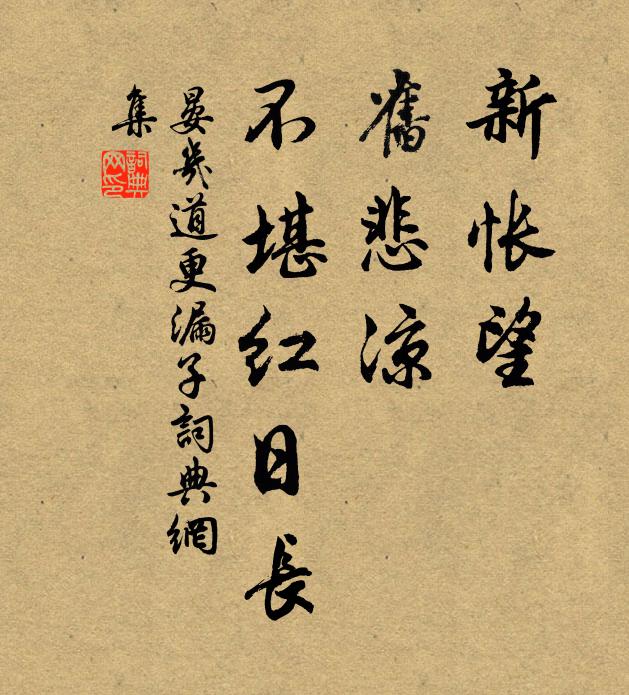 新悵望
舊悲涼
不堪紅日長
晏幾道更漏子詞典網
集
詞典
网印